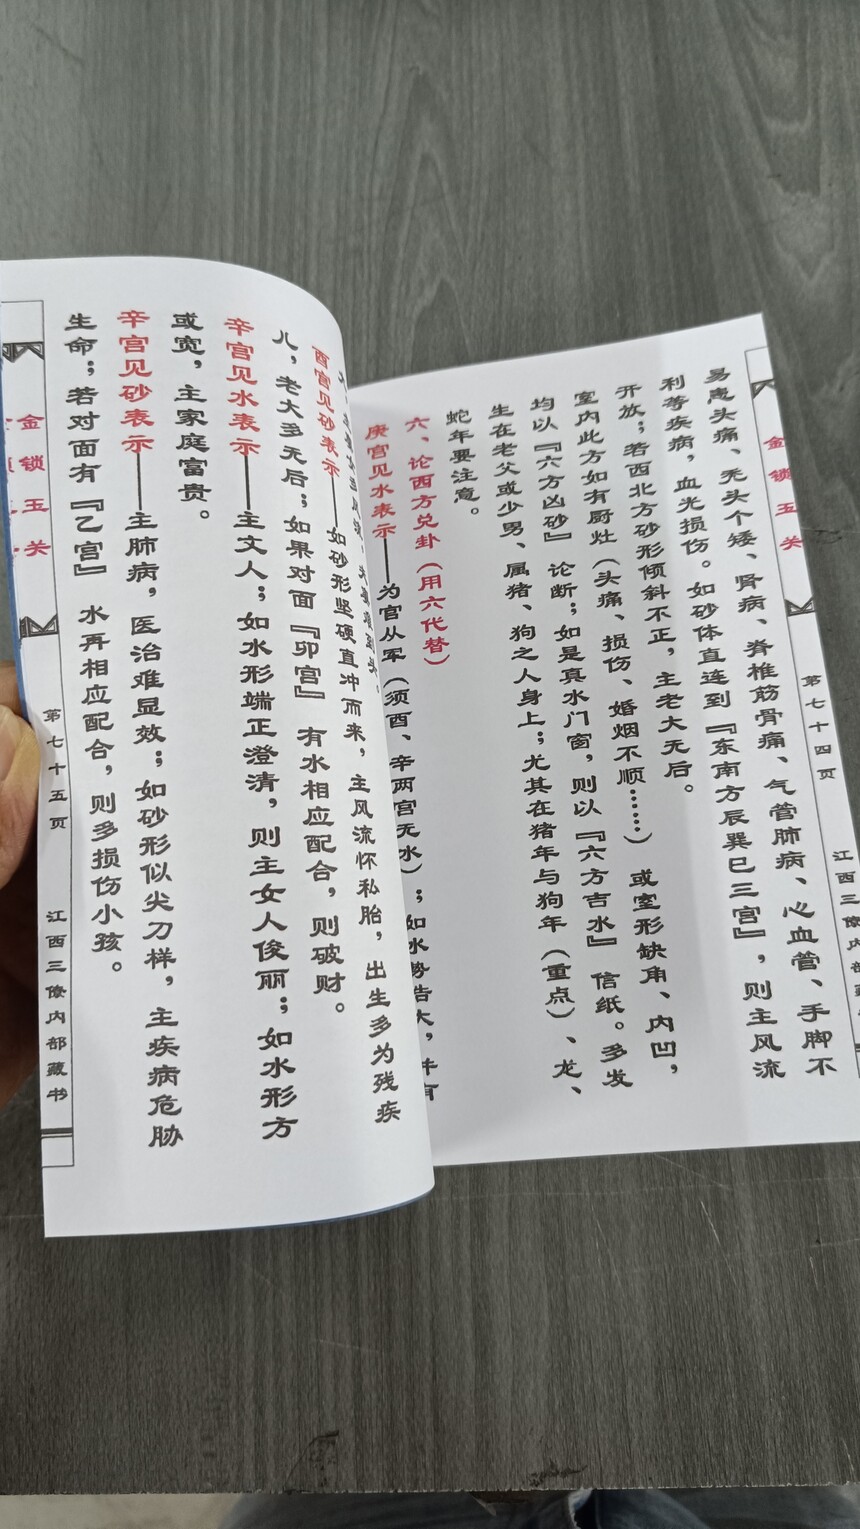 金锁玉关
第七十四页
江西三僚内部藏
易患头痛、秃头个矮、肾病、脊椎筋骨痛、气管肺病、心血管、手脚不
利等疾病，血光损伤。如砂体直连到『东南方辰巽巳三宫』，则主风流
开放；若西北方砂形倾斜不正，主老大无后。
室内此方如有厨灶（头痛、损伤、婚烟不顺……）或室形缺角、内凹，
均以『六方凶砂』论断；如是真水门窗，则以『六方吉水』信纸。多发
生在老父或少男、属猪、狗之人身上；尤其在猪年与狗年（重点）、龙、
蛇年要注意。
六、论西方兑卦（用六代替）
庚宫见水表示——为官从军（须酉、辛两宫无水）；如水势浩大，并有
酉宫见砂表示——如砂形坚硬直冲而来，主风流怀私胎，出生多为残疾
儿，老大多无后；如果对面『卯宫』有水相应配合，则破财。
辛宫见水表示——主文人；如水形端正澄清，则主女人俊丽；如水形方
或宽，主家庭富贵。
辛宫见砂表示——主肺病，医治难显效；如砂形似尖刀样，主疾病危胁
生命；若对面有『乙宫』水再相应配合，则多损伤小孩。
金锁玉关
第七十五页
江西三僚内部藏书